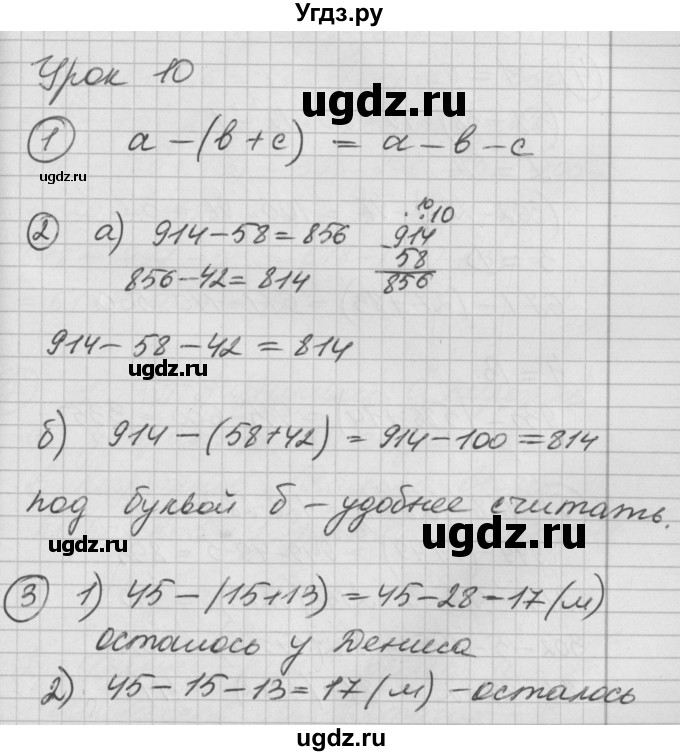 Угдз.ру
Урок 10
ugdz.ru
① a – (в + c) = a – в – c
ugdz.ru
10
10
② а) 914 – 58 = 856
– 914
58
856
856 – 42 = 814
914 – 58 – 42 = 814
ugdz.ru
б) 914 – (58+42) = 914 – 100 = 814
под буквой б – удобнее считать.
ugdz.ru
ugdz.ru
③ 1) 45 – (15+13) = 45 – 28 – 17 (м)
осталось у Дениса
2) 45 – 15 – 13 = 17 (м) – осталось
ugdz.ru
ugdz.ru